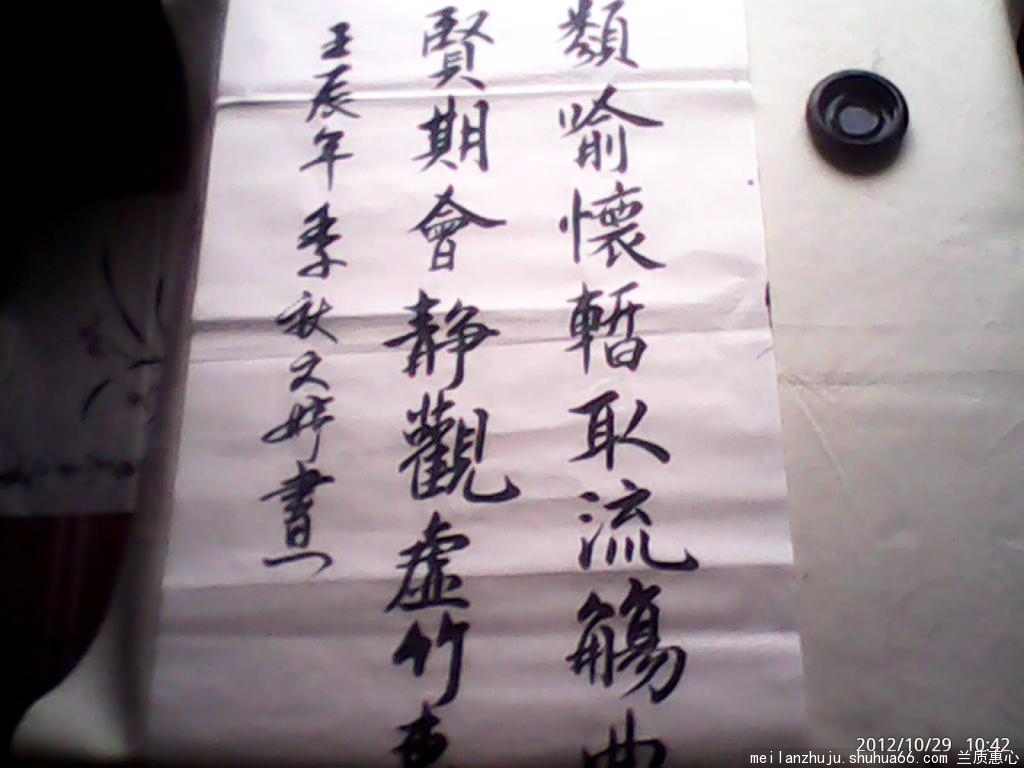 類喻懷暫取流觴曲
賢期會靜觀虛竹惠
壬辰年季秋文婷書
2012/10/29 10:42
meilanzhuju.shuhua66.com 兰质惠心